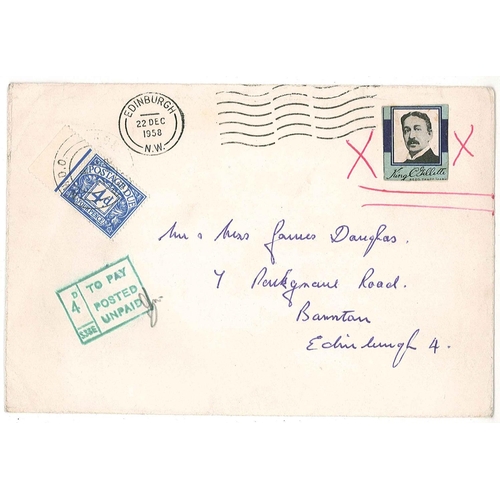 EDINBURGH
22 DEC
1958
N.W.
King C. Gillette
POSTAGE DUE
4d
4D
TO PAY
POSTED
UNPAID
S.38E
Mr & Mrs James Douglas.
7 Parkgrove Road.
Barnton
Edinburgh 4.